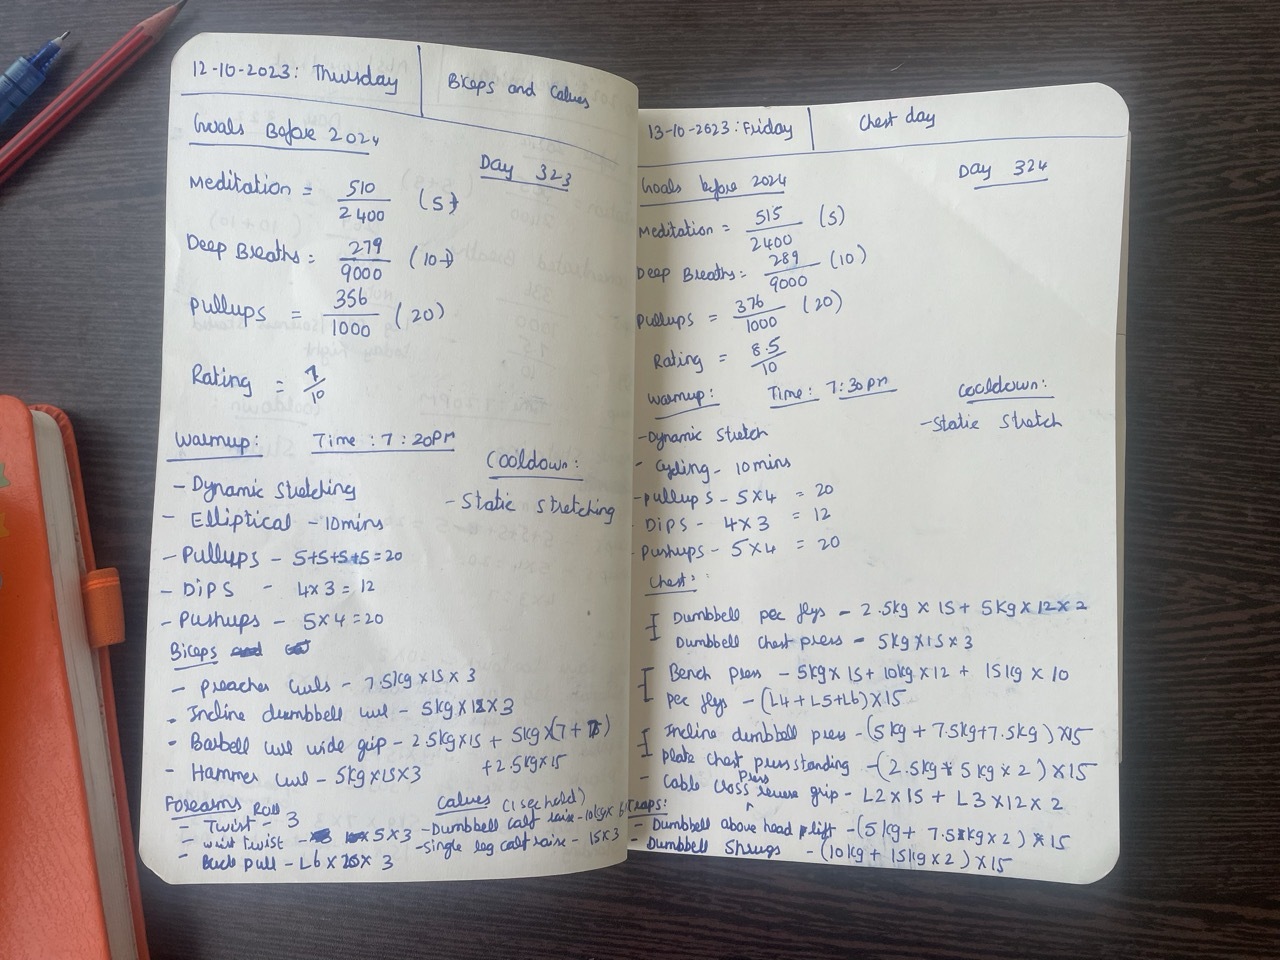 12-10-2023: Thursday
Biceps and Calves
Goals Before 2024
Day 323
Meditation = 510/2400 (5)
Deep Breaths = 279/9000 (10)
Pullups = 356/1000 (20)
Rating = 7/10
Warmup: Time: 7:20pm
Cooldown:
- Dynamic Stretching
- Static Stretching
- Elliptical - 10mins
- Pullups - 5+5+5+5=20
- DIPS - 4x3 = 12
- Pushups - 5x4=20
Biceps
- preacher curls - 7.5kg x 15 x 3
- Incline dumbbell curl - 5kg x 12 x 3
- Barbell curl wide grip - 2.5kg x 15 + 5kg x (7+
+ 2.5kg x 15
- Hammer curl - 5kg x 15 x 3
Forearms
- Twist - 3
- wrist twist - 5 x 3
- Back pull - L6 x x 3
Calves (1 sec hold)
- Dumbbell calf raise - 10kg x
- Single leg calf raise - 15 x 3
13-10-2023: Friday
Chest day
Day 324
Goals before 2024
Meditation = 515/2400 (5)
Deep Breaths = 289/9000 (10)
Pullups = 376/1000 (20)
Rating = 8.5/10
Warmup: Time: 7:30pm
Cooldown:
- Dynamic Stretch
- Static Stretch
- Cycling - 10mins
- Pullups - 5x4 = 20
- DIPS - 4x3 = 12
- Pushups - 5x4 = 20
Chest:
Dumbbell pec flys - 2.5kg x 15 + 5kg x 12 x 2
Dumbbell chest press - 5kg x 15 x 3
Bench press - 5kg x 15 + 10kg x 12 + 15kg x 10
pec flys - (L4+L5+L6) x 15
Incline dumbbell press - (5kg + 7.5kg + 7.5kg) x 15
plate chest press standing - (2.5kg + 5kg x 2) x 15
- Cable cross press reverse grip - L2 x 15 + L3 x 12 x 2
Traps:
- Dumbbell above head lift - (5kg + 7.5kg x 2) x 15
- Dumbbell Shrugs - (10kg + 15kg x 2) x 15